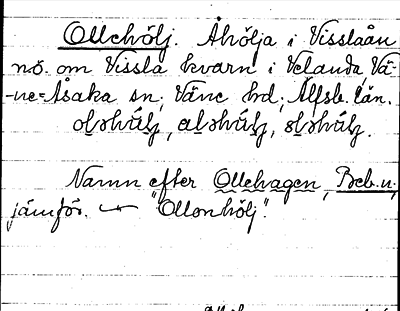 Ollehölj. Åhölja i Visslaån
nö. om Vissla kvarn i Velanda Vä-
-ne-Åsaka sn, Väne hd, Älfsb. län.
Namn efter Ollehagen, Beb.n.,
jämför. "Ollonhölj".